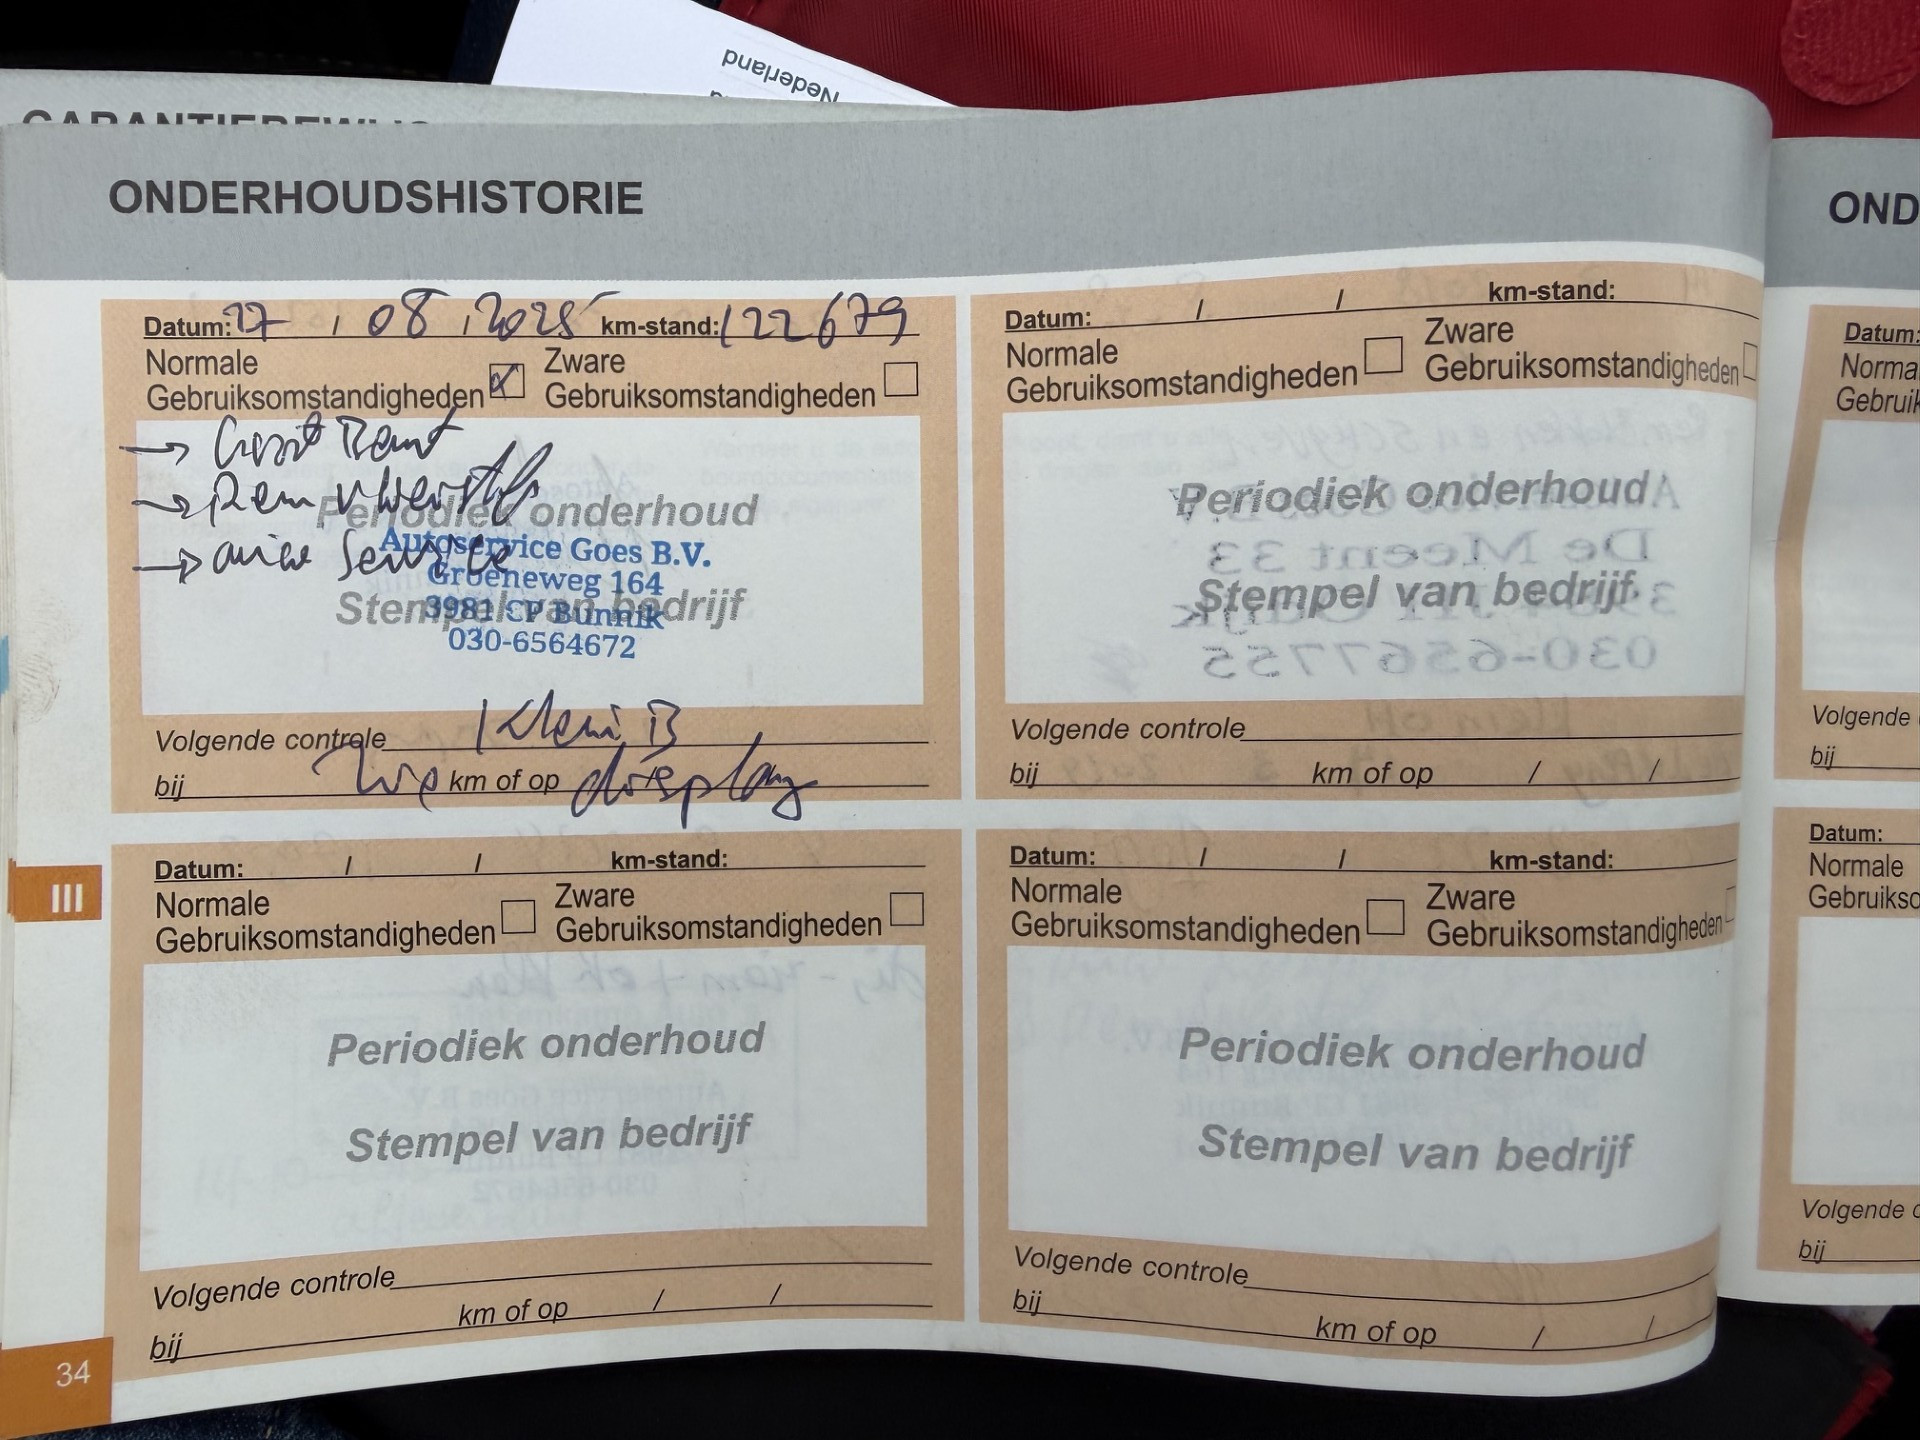 Nederland
GARANTIEBEWIJS
ONDERHOUDSHISTORIE
OND
Datum: 27 / 08 / 2025 km-stand: 122679
Normale
Gebruiksomstandigheden
Zware
Gebruiksomstandigheden
→ Groot
→ Rem
→ airco Service
Periodiek onderhoud
Autoservice Goes B.V.
Groeneweg 164
Stempel van bedrijf
3981 CP Bunnik
030-6564672
Volgende controle Klein B
bij zie km of op display
Datum: / / km-stand:
Normale
Gebruiksomstandigheden
Zware
Gebruiksomstandigheden
Periodiek onderhoud
Stempel van bedrijf
Volgende controle
bij km of op / /
Datum: / / km-stand:
Normale
Gebruiksomstandigheden
Zware
Gebruiksomstandigheden
Periodiek onderhoud
Stempel van bedrijf
Volgende controle
bij km of op / /
Datum: / / km-stand:
Normale
Gebruiksomstandigheden
Zware
Gebruiksomstandigheden
Periodiek onderhoud
Stempel van bedrijf
Volgende controle
bij km of op / /
Datum:
Norma
Gebruik
Volgende
bij
Datum:
Normale
Gebruikso
Volgende c
bij
III
34